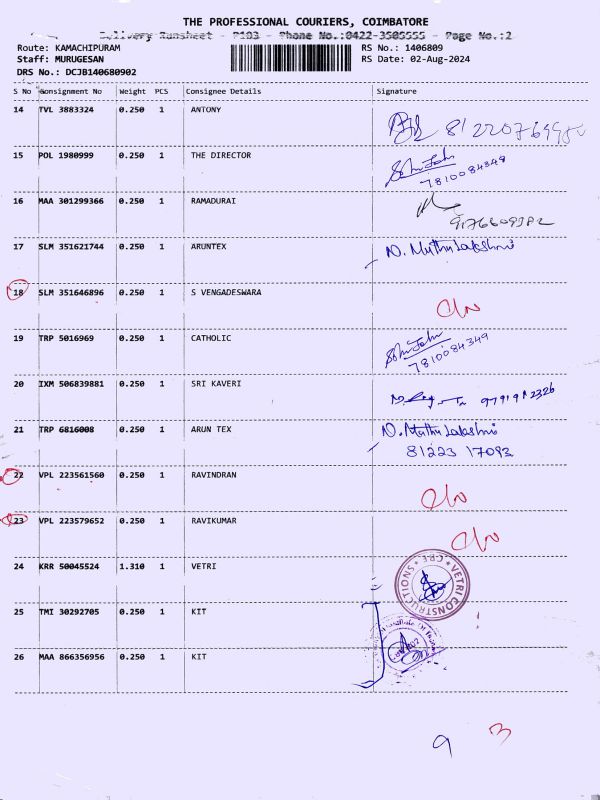 THE PROFESSIONAL COURIERS, COIMBATORE
Delivery Runsheet - P103 - Phone No.:0422-3505555 - Page No.:2
Route: KAMACHIPURAM
RS No.: 1406809
Staff: MURUGESAN
RS Date: 02-Aug-2024
DRS No.: DCJB140680902
S No Consignment No Weight PCS Consignee Details Signature
14 TVL 3883324 0.250 1 ANTONY
15 POL 1980999 0.250 1 THE DIRECTOR
John
7810084349
16 MAA 301299366 0.250 1 RAMADURAI
17 SLM 351621744 0.250 1 ARUNTEX N. MuthuLakshmi
18 SLM 351646896 0.250 1 S VENGADESWARA
19 TRP 5016969 0.250 1 CATHOLIC
John
7810084349
20 IXM 506839881 0.250 1 SRI KAVERI
21 TRP 6816008 0.250 1 ARUN TEX N. MuthuLakshmi
81223 17093
22 VPL 223561560 0.250 1 RAVINDRAN
23 VPL 223579652 0.250 1 RAVIKUMAR
24 KRR 50045524 1.310 1 VETRI
VETRI CONSTRUCTIONS * CBE *
25 TMI 30292705 0.250 1 KIT
26 MAA 866356956 0.250 1 KIT
9 3